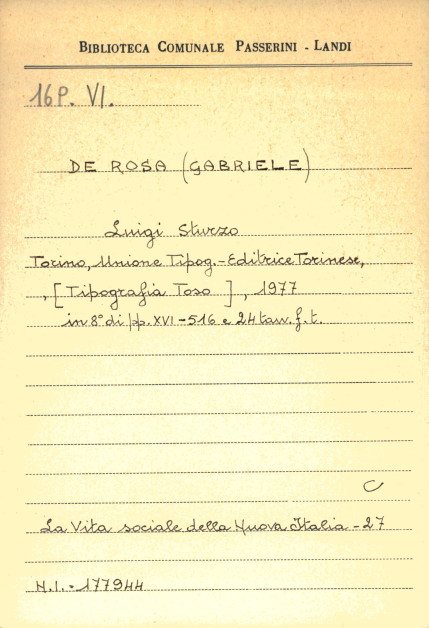 BIBLIOTECA COMUNALE PASSERINI - LANDI
16 P. VI.
DE ROSA (GABRIELE)
Luigi Sturzo
Torino, Unione Tipog.-Editrice Torinese,
, [Tipografia Toso ] , 1977
in 8° di pp. XVI-516 e 24 tav. f. t.
C
La Vita sociale della Nuova Italia - 27
N.I. - 177944